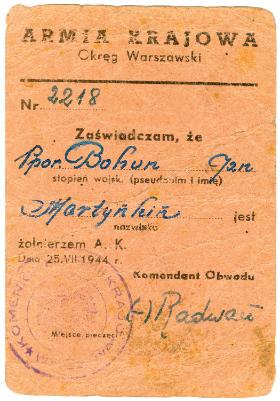 ARMIA KRAJOWA
Okręg Warszawski
Nr. 2218
Zaświadczam, że
Ppor. Bohun Jan
stopień wojsk. (pseudonim i imię)
Martynkin jest
nazwisko
żołnierzem A. K.
Dnia 25.VII 1944 r.
Komendant Obwodu
(-) Radwan
Miejsce pieczęci